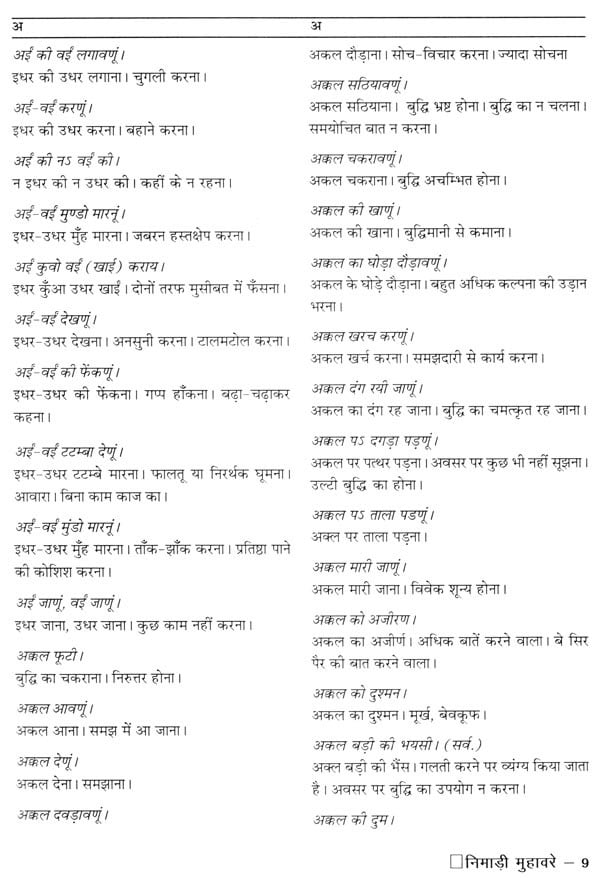 अ
अईं की वईं लगावणूं।
इधर की उधर लगाना। चुगली करना।
अईं-वईं करणूं।
इधर की उधर करना। बहाने करना।
अईं की नऽ वईं की।
न इधर की न उधर की। कहीं के न रहना।
अईं-वईं मुण्डो मारनूं।
इधर-उधर मुँह मारना। जबरन हस्तक्षेप करना।
अईं कुवो वईं (खाई) कराय।
इधर कुँआ उधर खाईं। दोनों तरफ मुसीबत में फँसना।
अईं-वईं देखणूं।
इधर-उधर देखना। अनसुनी करना। टालमटोल करना।
अईं-वईं की फेंकणूं।
इधर-उधर की फेंकना। गप्प हाँकना। बढ़ा-चढ़ाकर
कहना।
अईं-वईं टटम्बा देणूं।
इधर-उधर टटम्बे मारना। फालतू या निरर्थक घूमना।
आवारा। बिना काम काज का।
अईं-वईं मुंडो मारनूं।
इधर-उधर मुँह मारना। ताँक-झाँक करना। प्रतिष्ठा पाने
की कोशिश करना।
अईं जाणूं, वईं जाणूं।
इधर जाना, उधर जाना। कुछ काम नहीं करना।
अक्कल फूटी।
बुद्धि का चकराना। निरुत्तर होना।
अक्कल आवणूं।
अकल आना। समझ में आ जाना।
अक्कल देणूं।
अकल देना। समझाना।
अक्कल दवड़ावणूं।
अ
अकल दौड़ाना। सोच-विचार करना। ज्यादा सोचना
अक्कल सठियावणूं।
अकल सठियाना। बुद्धि भ्रष्ट होना। बुद्धि का न चलना।
समयोचित बात न करना।
अक्कल चकरावणूं।
अकल चकराना। बुद्धि अचम्भित होना।
अक्कल की खाणूं।
अकल की खाना। बुद्धिमानी से कमाना।
अक्कल का घोड़ा दौड़ावणूं।
अकल के घोड़े दौड़ाना। बहुत अधिक कल्पना की उड़ान
भरना।
अक्कल खरच करणूं।
अकल खर्च करना। समझदारी से कार्य करना।
अक्कल दंग रयी जाणूं।
अकल का दंग रह जाना। बुद्धि का चमत्कृत रह जाना।
अक्कल पऽ दगड़ा पड़णूं।
अकल पर पत्थर पड़ना। अवसर पर कुछ भी नहीं सूझना।
उल्टी बुद्धि का होना।
अक्कल पऽ ताला पडणूं।
अक्ल पर ताला पड़ना।
अक्कल मारी जाणूं।
अकल मारी जाना। विवेक शून्य होना।
अक्कल को अजीरण।
अकल का अजीर्ण। अधिक बातें करने वाला। बे सिर
पैर की बात करने वाला।
अक्कल को दुश्मन।
अकल का दुश्मन। मूर्ख, बेवकूफ।
अक्कल बड़ी की भयसी। (सर्व.)
अक्ल बड़ी की भैंस। गलती करने पर व्यंग्य किया जाता
है। अवसर पर बुद्धि का उपयोग न करना।
अक्कल की दुम।
□निमाड़ी मुहावरे – 9